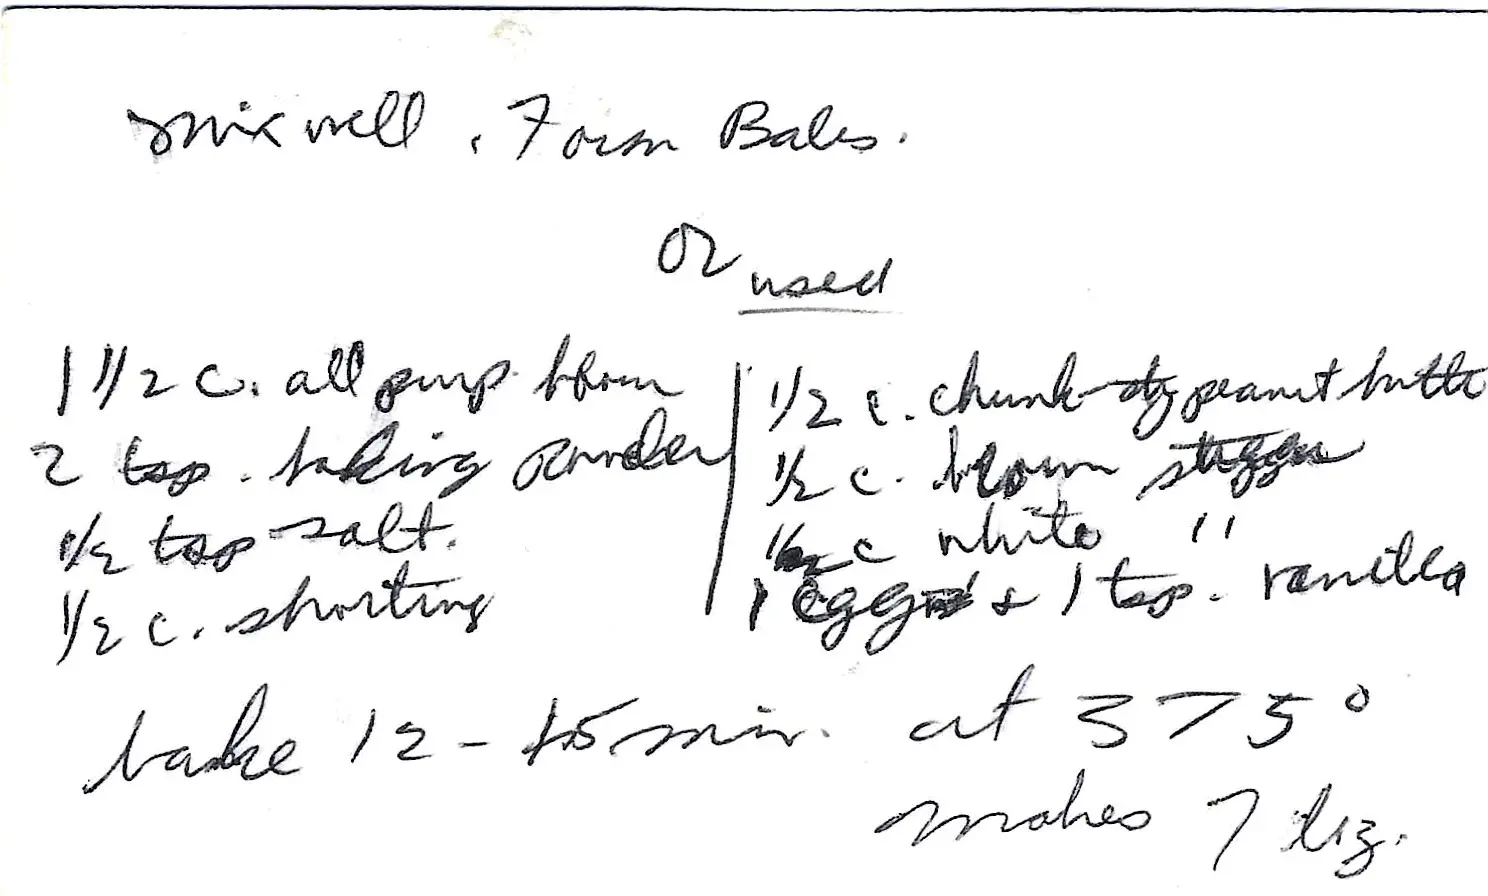 mix well. Form Balls.
or used
1 1/2 c. all purp. flour
2 tsp. baking powder
1/2 tsp salt.
1/2 c. shorting
1/2 c. chunk-dy peanut butte
1/2 c. brown sugar
1/2 c white "
1 egg & 1 tsp. vanilla
bake 12 - 15 min. at 375°
makes 7 dz.